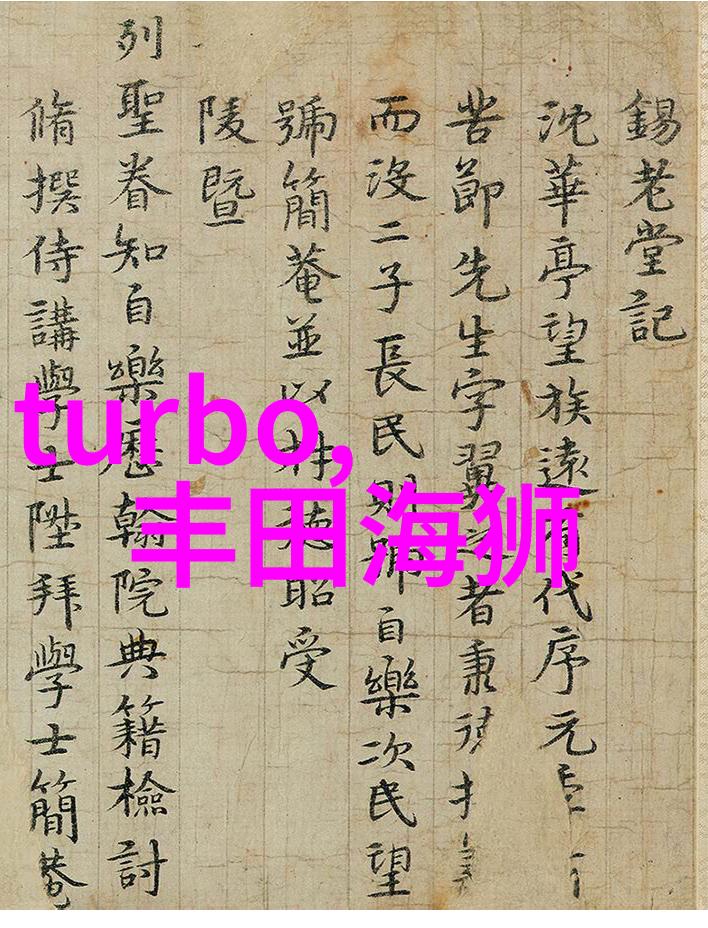 錫老堂記
沈華亭望族遠有代序元
苦節先生字翼之者秉
而沒二子長民則號自樂次民望
號簡菴並以材藝昭受
陵暨
列聖眷知自樂歷翰院典籍檢討
脩撰侍講學士陞拜學士簡菴
turbo,
丰田海狮